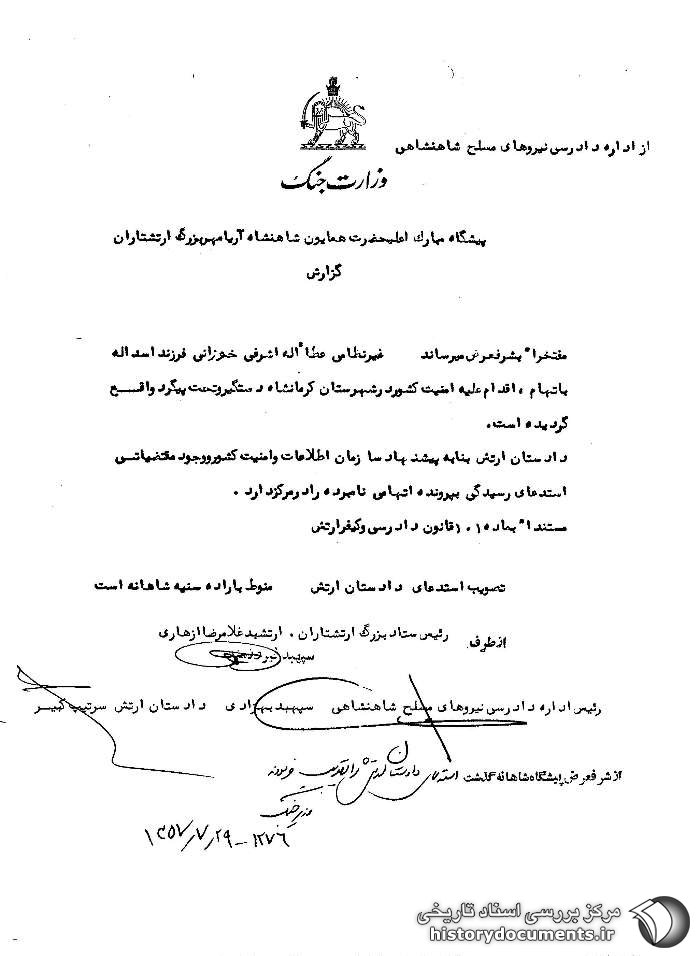 از اداره دادرسی نیروهای مسلح شاهنشاهی
وزارت جنگ
پیشگاه مبارک اعلیحضرت همایون شاهنشاه آریامهر بزرگ ارتشتاران
گزارش
مفتخرا" بشرفعرض میرساند غیرنظامی عطاءاله اشرفی خوزانی فرزند اسداله
باتهام ، اقدام علیه امنیت کشور در شهرستان کرمانشاه دستگیر و تحت پیگرد واقع
گردیده است.
دادستان ارتش بنابه پیشنهاد سازمان اطلاعات و امنیت کشور و وجود مقتضیاتی
استدعای رسیدگی بپرونده اتهامی نامبرده را در مرکز دارد .
مستندا" بماده ۱۰۱ قانون دادرسی و کیفر ارتش
تصویب استدعای دادستان ارتش منوط باراده سنیه شاهانه است
از طرف رئیس ستاد بزرگ ارتشتاران ، ارتشبد غلامرضا ازهاری
سپهبد
رئیس اداره دادرسی نیروهای مسلح شاهنشاهی سپهبد بهزادی دادستان ارتش سرتیپ کبیر
از شرفعرض پیشگاه شاهانه گذشت استدعای دادستان ارتش را تصویب فرمودند
وزیر جنگ
۱۲۷۶ - ۱۳۵۷/۷/۲۹
مرکز بررسی اسناد تاریخی
historydocuments.ir